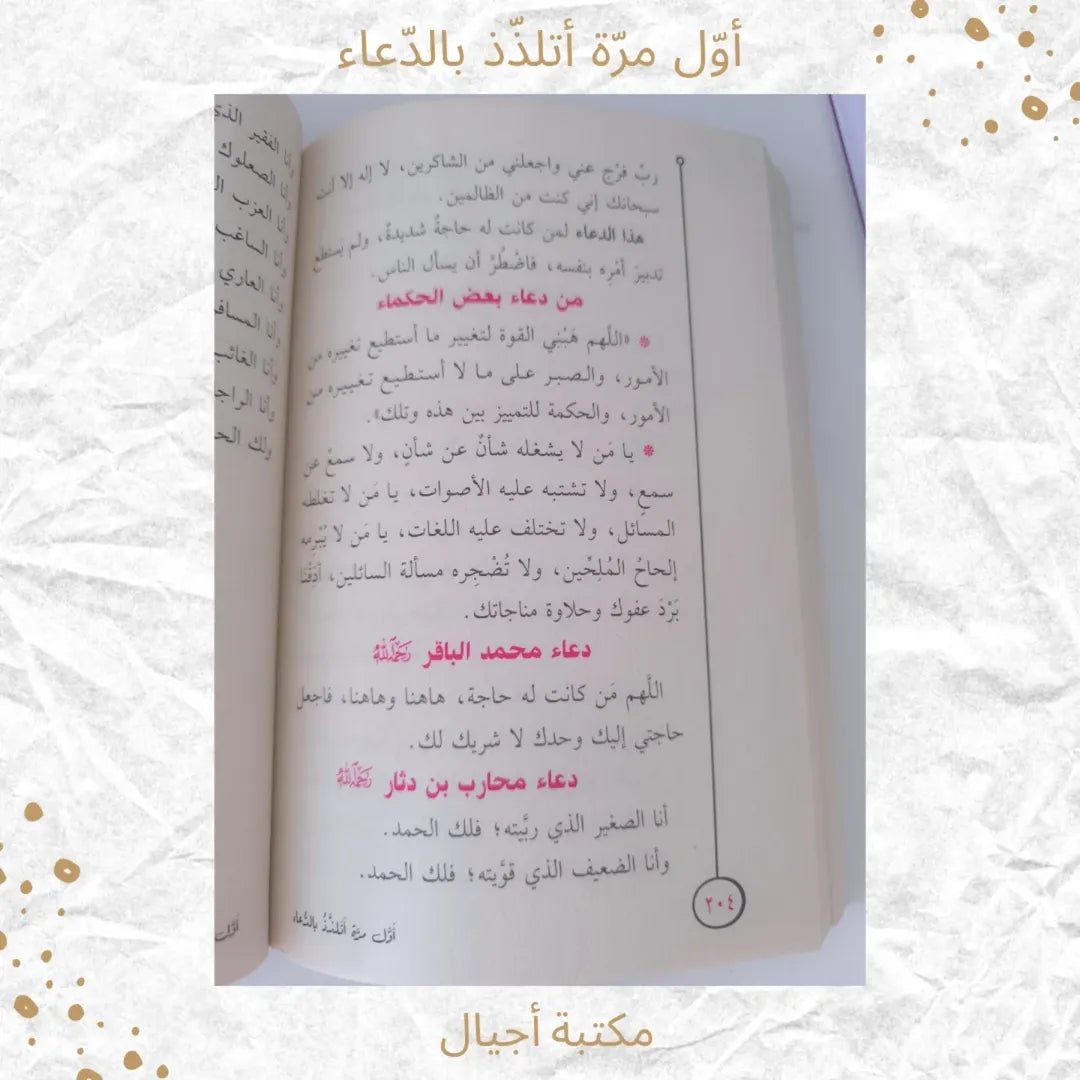 أوّل مرّة أتلذّذ بالدّعاء
ربِّ فرّج عني واجعلني من الشاكرين، لا إله إلا أنت
سبحانك إني كنت من الظالمين.
هذا الدعاء لمن كانت له حاجةٌ شديدةٌ، ولم يستطع
تدبيرَ أمْرِه بنفسه، فاضْطُرَّ أن يسأل الناس.
من دعاء بعض الحكماء
* «اللَّهم هَبْني القوة لتغيير ما أستطيع تغييره من
الأمور، والصبر على ما لا أستطيع تغييره من
الأمور، والحكمة للتمييز بين هذه وتلك».
* يا مَن لا يشغله شأنٌ عن شأنٍ، ولا سمعٌ عن
سمعٍ، ولا تشتبه عليه الأصوات، يا مَن لا تغلطه
المسائل، ولا تختلف عليه اللغات، يا مَن لا يُبْرِمه
إلحاحُ المُلِحِّين، ولا تُضْجِره مسألة السائلين، أذِقْنَا
بَرْدَ عفوك وحلاوة مناجاتك.
دعاء محمد الباقر رَحِمَهُ اللَّهُ
اللَّهم مَن كانت له حاجة، هاهنا وهاهنا، فاجعل
حاجتي إليك وحدك لا شريك لك.
دعاء محارب بن دثار رَحِمَهُ اللَّهُ
أنا الصغير الذي ربَّيته؛ فلك الحمد.
وأنا الضعيف الذي قوَّيته؛ فلك الحمد.
٢٠٤
أوَّل مرَّة أتلذَّذُ بالدُّعاء
وأنا الفقير الذي
وأنا الصعلوك
وأنا العزب
وأنا الساغب
وأنا العاري
وأنا المسافر
وأنا الغائب
وأنا
ولك
أوَّل
مكتبة أجيال